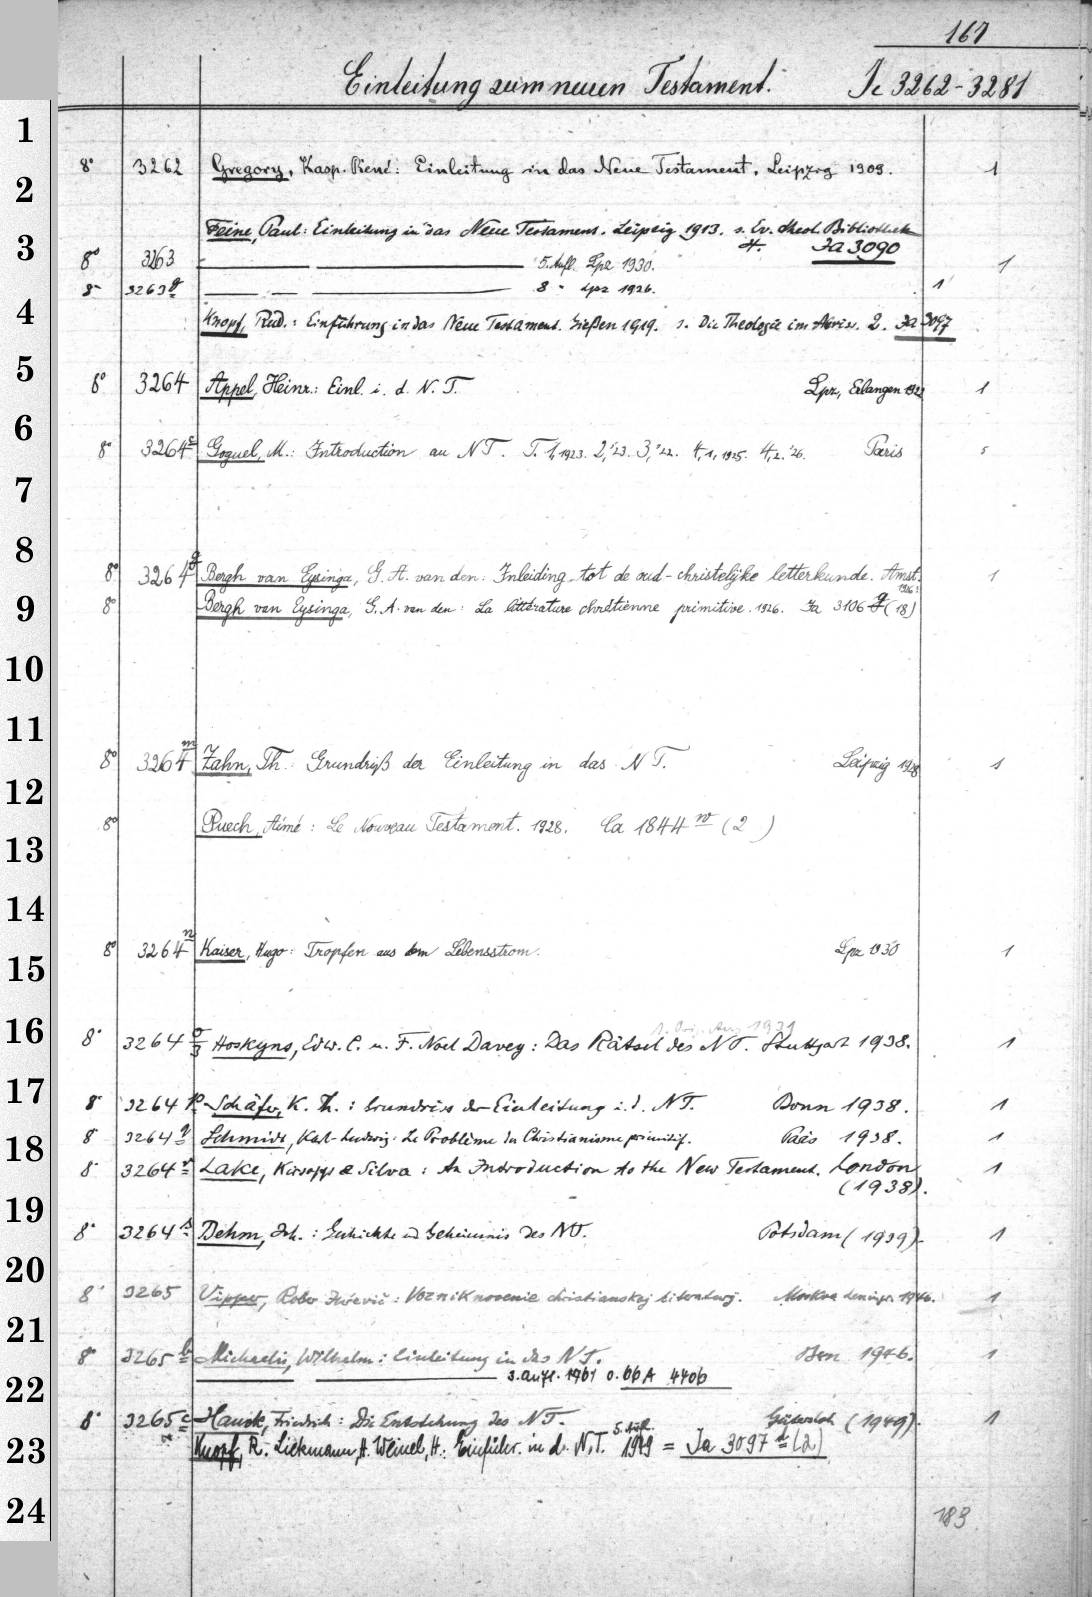 167
Einleitung zum neuen Testament. Ic 3262-3281
1
8° 3262 Gregory, Kasp. René: Einleitung in das Neue Testament. Leipzig 1909. 1
2
Feine, Paul: Einleitung in das Neue Testament. Leipzig 1913. s. Ev. theol. Bibliothek
3
4. Ja 3090
8° 3263 5. Aufl. Lpz 1930. 1
8° 3263 g 8 " Lpz 1926. 1
4
Knopf, Rud.: Einführung in das Neue Testament. Gießen 1919. s. Die Theologie im Abriss. 2. Ja 3097
5
8° 3264 Appel, Heinr.: Einl. i. d. N. T. Lpz, Erlangen 1922 1
6
8° 3264 c Goguel, M.: Introduction au NT. T. 1, 1923. 2, '23. 3, '22. 4,1, 1925. 4,2. '26. Paris 5
7
8
8° 3264 g Bergh van Eysinga, G. A. van den: Inleiding tot de oud-christelijke letterkunde. Amst. 1
9
8° Bergh van Eysinga, G. A. van den: La littérature chrétienne primitive. 1926. Ja 3106 g (18)
10
11
8° 3264 m Zahn, Th.: Grundriß der Einleitung in das NT. Leipzig 1928 1
12
8° Puech, Aimé: Le Nouveau Testament. 1928. Ca 1844 w (2 )
13
14
8° 3264 n Kaiser, Hugo: Tropfen aus dem Lebensstrom. Lpz 1930 1
15
16
1931
8° 3264 o/3 Hoskyns, Edw. C. u. F. Noel Davey: Das Rätsel des NT. Stuttgart 1938. 1
17
8° 3264 p Schäfer, K. Th.: Grundriss der Einleitung i. d. NT. Bonn 1938. 1
8° 3264 q Schmidt, Karl-Ludwig: Le Problème du Christianisme primitif. Paris 1938. 1
18
8° 3264 r Lake, Kirsopp & Silva: An Introduction to the New Testament. London 1
(1938).
19
8° 3264 s Behm, Joh.: Geschichte und Geheimnis des NT. Potsdam (1939). 1
20
8° 3265 Vipper, Robert Jurevič: Vozniknovenie christianskoj literatury. Moskva Leningr. 1946. 1
21
8° 3265 b Michaelis, Wilhelm: Einleitung in das NT. Bern 1946. 1
22
3. Aufl. 1961 0. 66 A 4406
8° 3265 c Hauck, Friedrich: Die Entstehung des NT. Gütersloh (1949). 1
23
Knopf, R. Lietzmann, H. Weinel, H.: Einführ. in d. N.T. 5. Aufl. 1949 = Ja 3097 d (2)
24
183